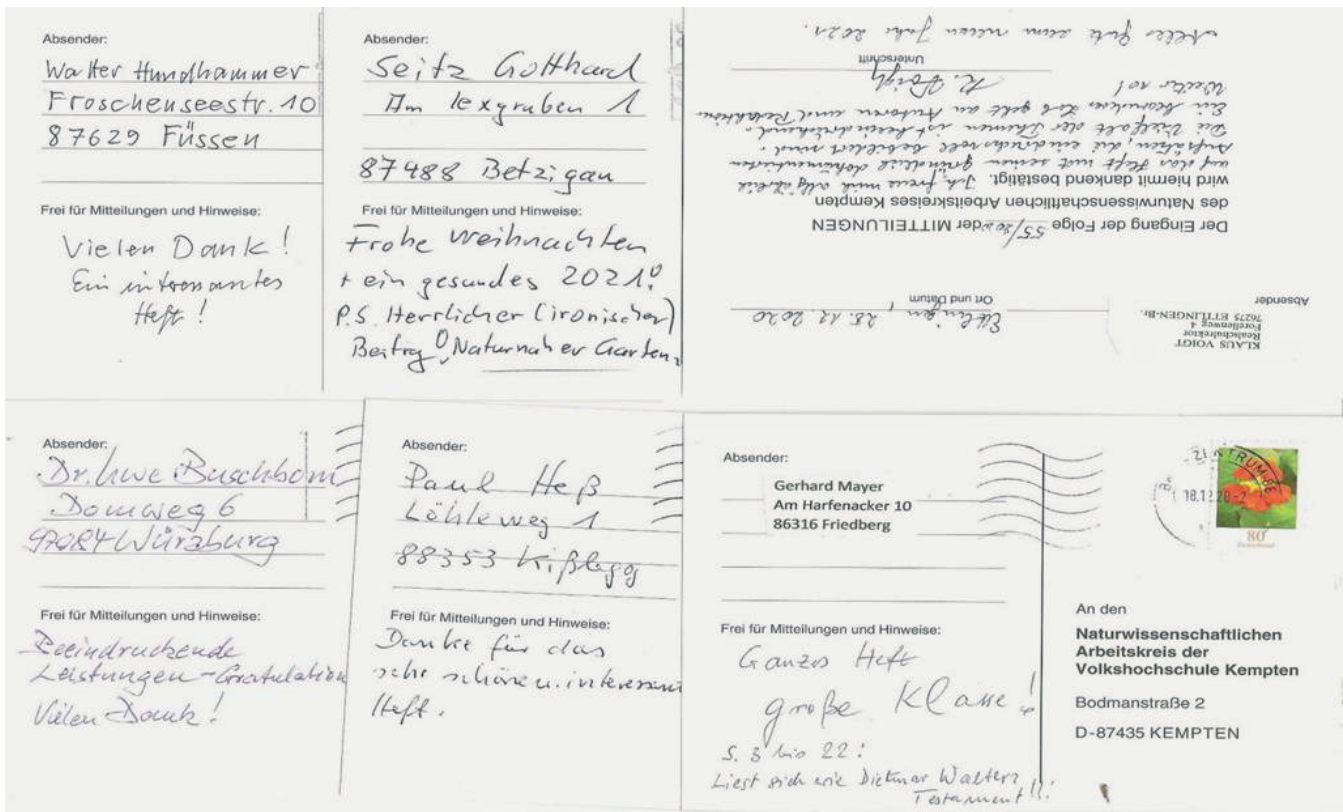 Absender:
Walter Hundhammer
Froschenseestr. 10
87629 Füssen
Frei für Mitteilungen und Hinweise:
Vielen Dank!
Ein interessantes
Heft!
Absender:
Seitz Gotthard
Am Lexgraben 1
87488 Betzigau
Frei für Mitteilungen und Hinweise:
Frohe Weihnachten
+ ein gesundes 2021!
P.S. Herrlicher (ironischer)
Beitrag "Naturnaher Garten"
KLAUS VOIGT
Realschulrektor
Forellenweg 4
76275 ETTLINGEN-Br.
Absender
Ettlingen, 28.12.2020
Ort und Datum
Der Eingang der Folge 55/2020 der MITTEILUNGEN
des Naturwissenschaftlichen Arbeitskreises Kempten
wird hiermit dankend bestätigt. Ich freue mich
auf das Heft mit seinen gründlich dokumentierten
Aufsätzen, die eindrucksvoll bebildert sind.
Die Vielfalt der Themen ist beeindruckend.
Ein besonderes Lob geht an Autoren und Redaktion.
Weiter so!
K. Voigt
Unterschrift
Alles Gute zum neuen Jahr 2021.
Absender:
Dr. Uwe Buschbom
Domweg 6
97084 Würzburg
Frei für Mitteilungen und Hinweise:
Beeindruckende
Leistungen - Gratulation
Vielen Dank!
Absender:
Paul Heß
Löhleweg 1
88353 Kißlegg
Frei für Mitteilungen und Hinweise:
Danke für das
sehr schöne u. interessant
Heft.
Absender:
Gerhard Mayer
Am Harfenacker 10
86316 Friedberg
Frei für Mitteilungen und Hinweise:
Ganzes Heft
große Klasse!
S. 3 bis 22:
Liest sich wie Dietmar Walters
Testament!!!
ZENTRUM 86
18.12.20-2
80
Deutschland
An den
Naturwissenschaftlichen
Arbeitskreis der
Volkshochschule Kempten
Bodmanstraße 2
D-87435 KEMPTEN